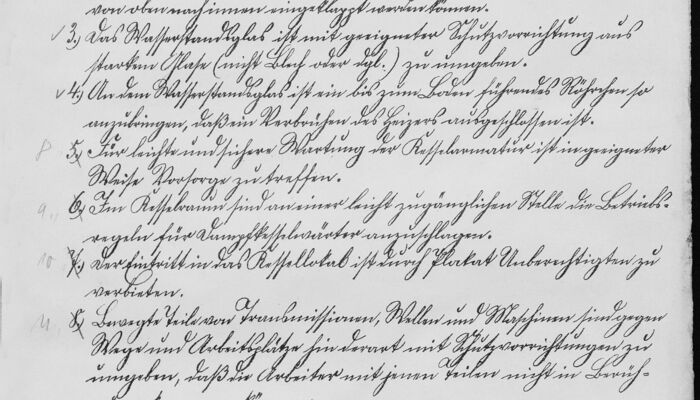 von oben nach innen eingeklappt werden können.
✓ 3.) Das Wasserstandsglas ist mit geeigneter Schutzvorrichtung aus
starkem Glase (nicht Blech oder dgl.) zu umgeben.
✓ 4.) An dem Wasserstandsglas ist ein bis zum Boden führendes Röhrchen so
anzubringen, daß ein Verbrühen des Heizers ausgeschlossen ist.
8 5.) Für leichte und sichere Wartung der Kesselarmatur ist in geeigneter
Weise Vorsorge zu treffen.
9. 6.) Im Kesselraum sind an einer leicht zugänglichen Stelle die Betriebs-
regeln für Dampfkesselwärter anzuschlagen.
10 7.) Der Eintritt in das Kessellokal ist durch Plakat Unberechtigten zu
verbieten.
11. 8.) Bewegte Teile von Transmissionen, Wellen und Maschinen sind gegen
Wege und Arbeitsplätze hin derart mit Schutzvorrichtungen zu
umgeben, daß die Arbeiter mit jenen Teilen nicht in Berüh-